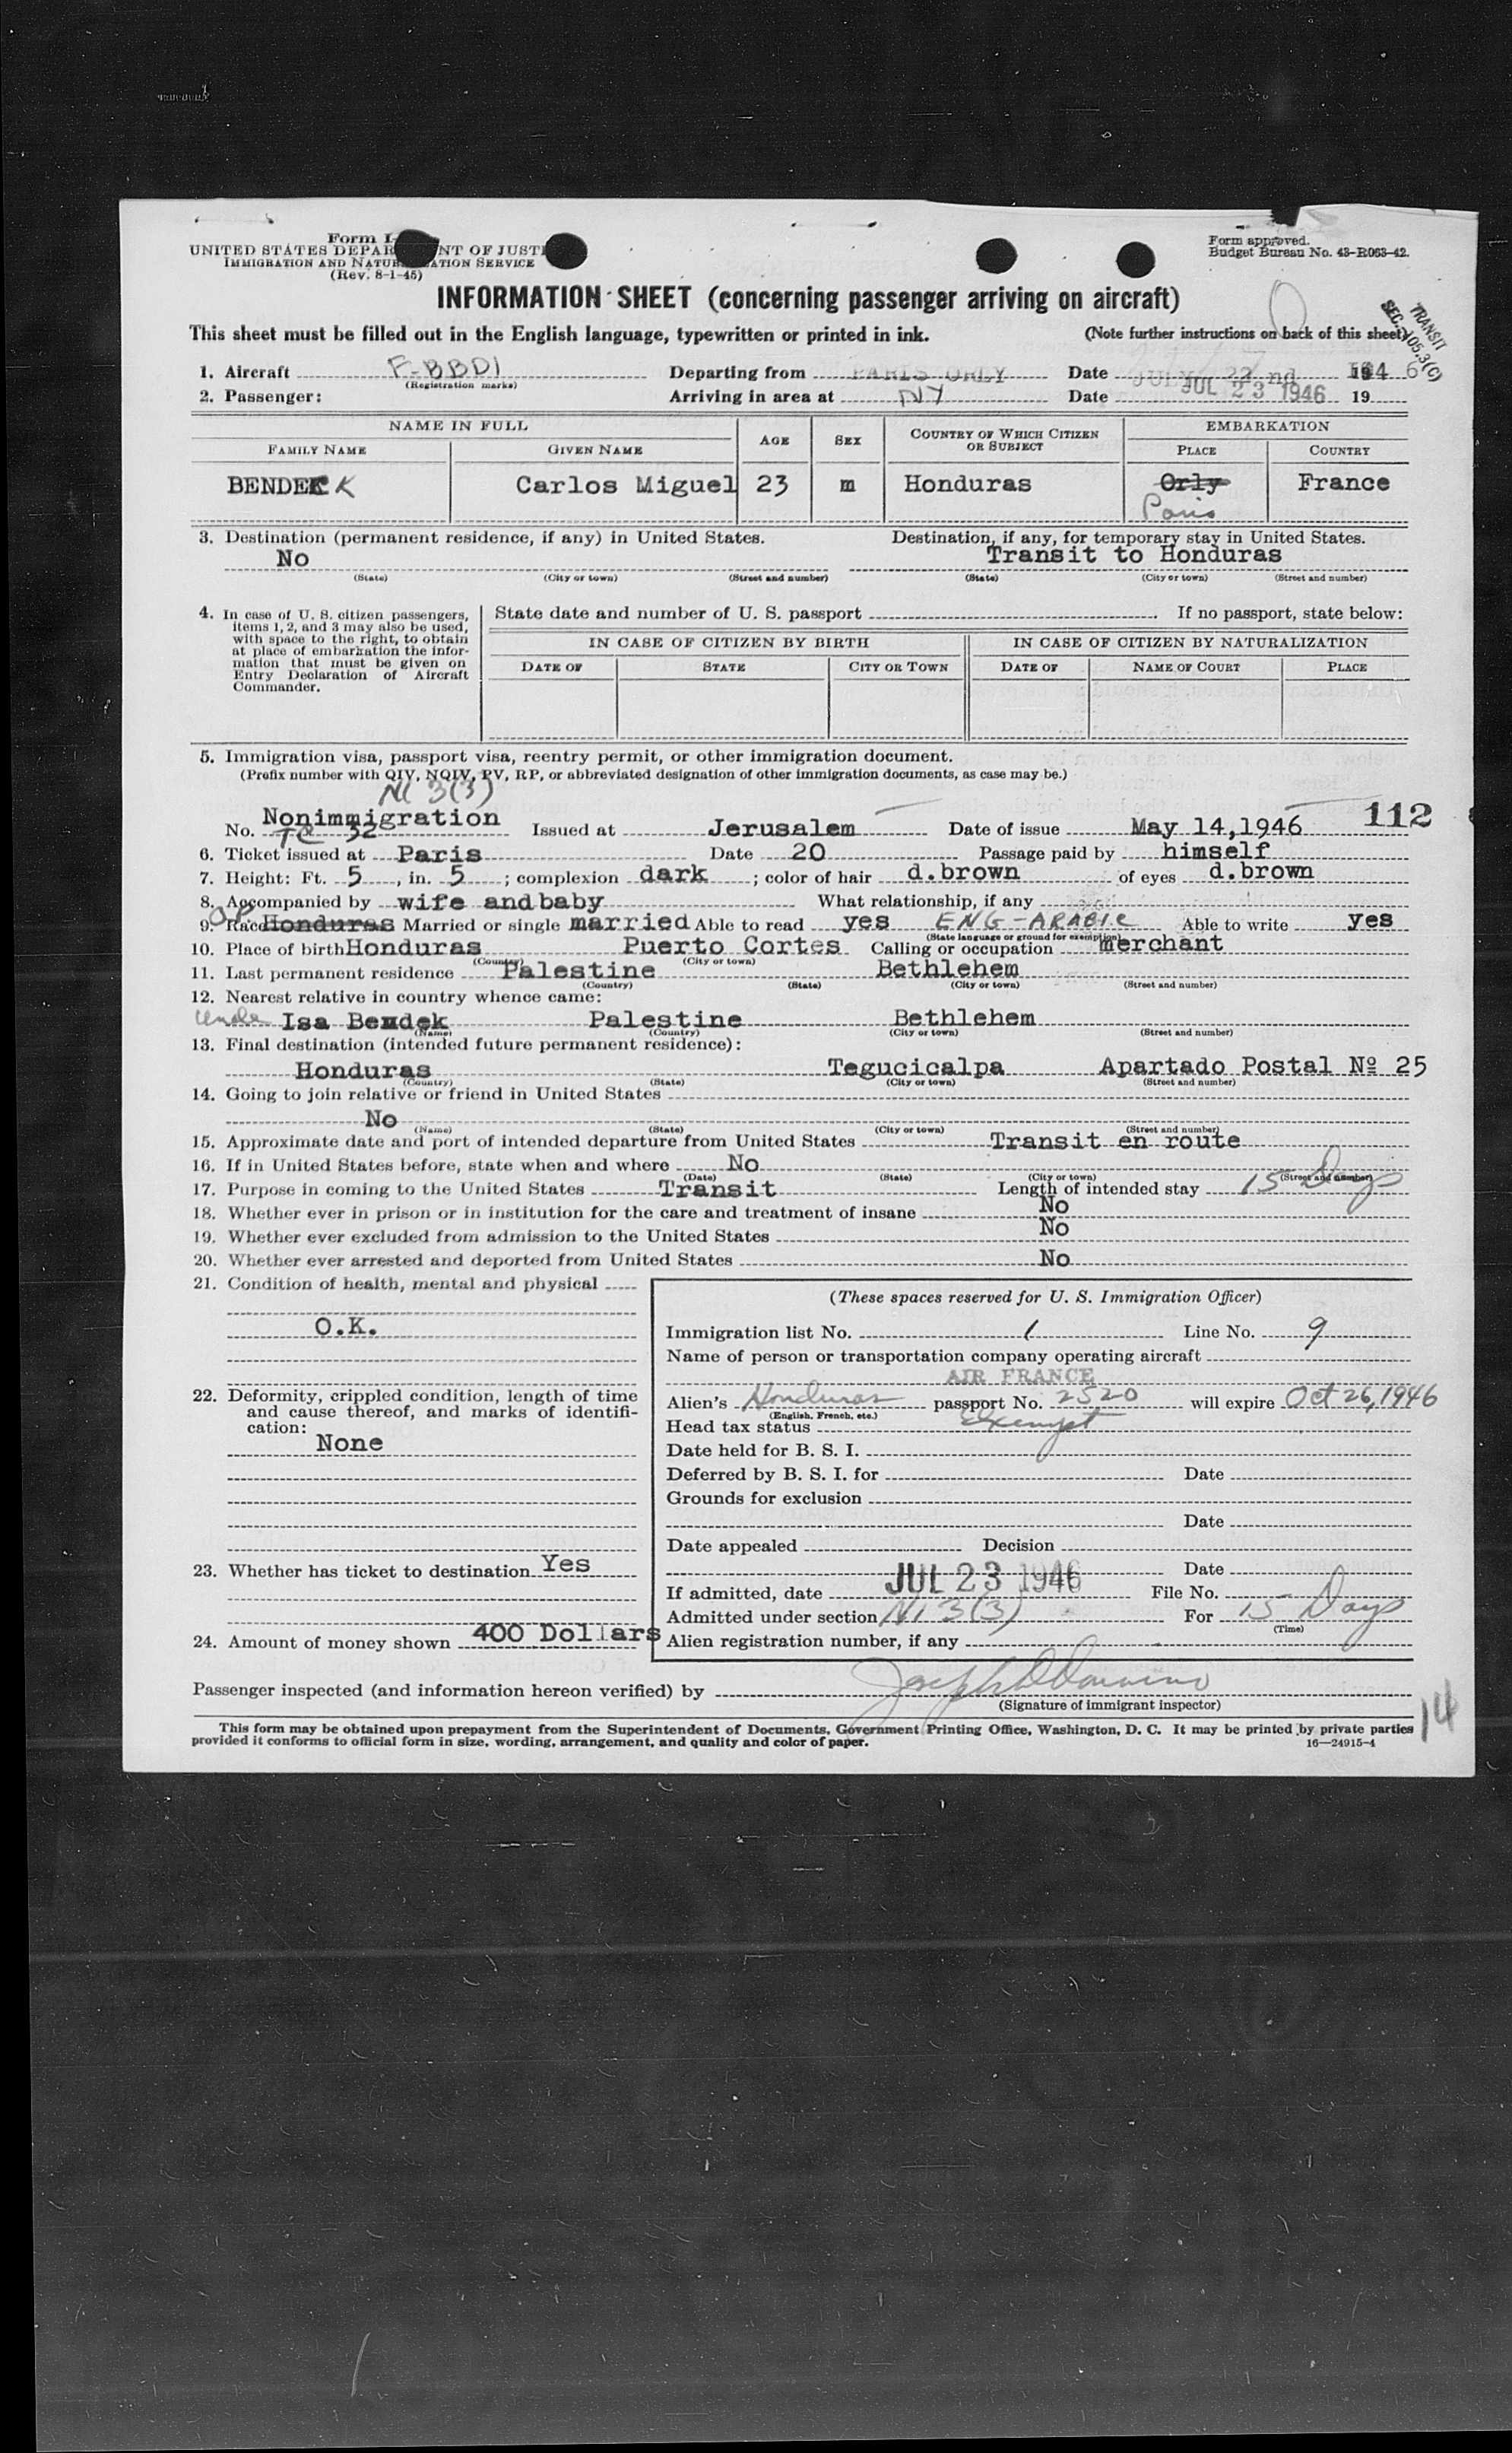 Form I-
UNITED STATES DEPAR NT OF JUSTI
IMMIGRATION AND NATUR ATION SERVICE
(Rev. 8-1-45)
Form approved.
Budget Bureau No. 43-R063-42.
INFORMATION SHEET (concerning passenger arriving on aircraft)
TRANSIT
SEC. 105.3(c)
This sheet must be filled out in the English language, typewritten or printed in ink. (Note further instructions on back of this sheet)
1. Aircraft F-BBDI Departing from PARIS ORLY Date JULY 22nd 1946
(Registration marks)
2. Passenger: Arriving in area at NY Date JUL 23 1946 19
NAME IN FULL AGE SEX COUNTRY OF WHICH CITIZEN OR SUBJECT EMBARKATION
FAMILY NAME GIVEN NAME PLACE COUNTRY
BENDEK K Carlos Miguel 23 m Honduras Orly France
Paris
3. Destination (permanent residence, if any) in United States. Destination, if any, for temporary stay in United States.
No Transit to Honduras
(State) (City or town) (Street and number) (State) (City or town) (Street and number)
4. In case of U. S. citizen passengers,
items 1, 2, and 3 may also be used,
with space to the right, to obtain
at place of embarkation the infor-
mation that must be given on
Entry Declaration of Aircraft
Commander.
State date and number of U. S. passport If no passport, state below:
IN CASE OF CITIZEN BY BIRTH IN CASE OF CITIZEN BY NATURALIZATION
DATE OF STATE CITY OR TOWN DATE OF NAME OF COURT PLACE
5. Immigration visa, passport visa, reentry permit, or other immigration document.
(Prefix number with QIV, NQIV, PV, RP, or abbreviated designation of other immigration documents, as case may be.)
NI 3(3)
Nonimmigration 112
No. TC 32 Issued at Jerusalem Date of issue May 14,1946
6. Ticket issued at Paris Date 20 Passage paid by himself
7. Height: Ft. 5, in. 5; complexion dark; color of hair d.brown of eyes d.brown
8. Accompanied by wife and baby What relationship, if any
9. Race Honduras Married or single married Able to read yes ENG-ARABIC Able to write yes
(State language or ground for exemption)
10. Place of birth Honduras Puerto Cortes Calling or occupation merchant
(Country) (City or town)
11. Last permanent residence Palestine Bethlehem
(Country) (State) (City or town) (Street and number)
12. Nearest relative in country whence came:
Uncle Isa Bendek Palestine Bethlehem
(Name) (Country) (City or town) (Street and number)
13. Final destination (intended future permanent residence):
Honduras Tegucicalpa Apartado Postal Nº 25
(Country) (State) (City or town) (Street and number)
14. Going to join relative or friend in United States
No
(Name) (State) (City or town) (Street and number)
15. Approximate date and port of intended departure from United States Transit en route
16. If in United States before, state when and where No
(Date) (State) (City or town) (Street and number)
17. Purpose in coming to the United States Transit Length of intended stay 15 Days
18. Whether ever in prison or in institution for the care and treatment of insane No
19. Whether ever excluded from admission to the United States No
20. Whether ever arrested and deported from United States No
21. Condition of health, mental and physical
O.K.
22. Deformity, crippled condition, length of time
and cause thereof, and marks of identifi-
cation:
None
23. Whether has ticket to destination Yes
24. Amount of money shown 400 Dollars
(These spaces reserved for U. S. Immigration Officer)
Immigration list No. 1 Line No. 9
Name of person or transportation company operating aircraft
AIR FRANCE
Alien's Honduras passport No. 2520 will expire Oct 26, 1946
(English, French, etc.)
Head tax status Exempt
Date held for B. S. I.
Deferred by B. S. I. for Date
Grounds for exclusion
Date
Date appealed Decision
Date
If admitted, date JUL 23 1946 File No.
Admitted under section NI 3(3) For 15 Days
(Time)
Alien registration number, if any
Passenger inspected (and information hereon verified) by
(Signature of immigrant inspector)
14
This form may be obtained upon prepayment from the Superintendent of Documents, Government Printing Office, Washington, D. C. It may be printed by private parties
provided it conforms to official form in size, wording, arrangement, and quality and color of paper. 16—24915-4